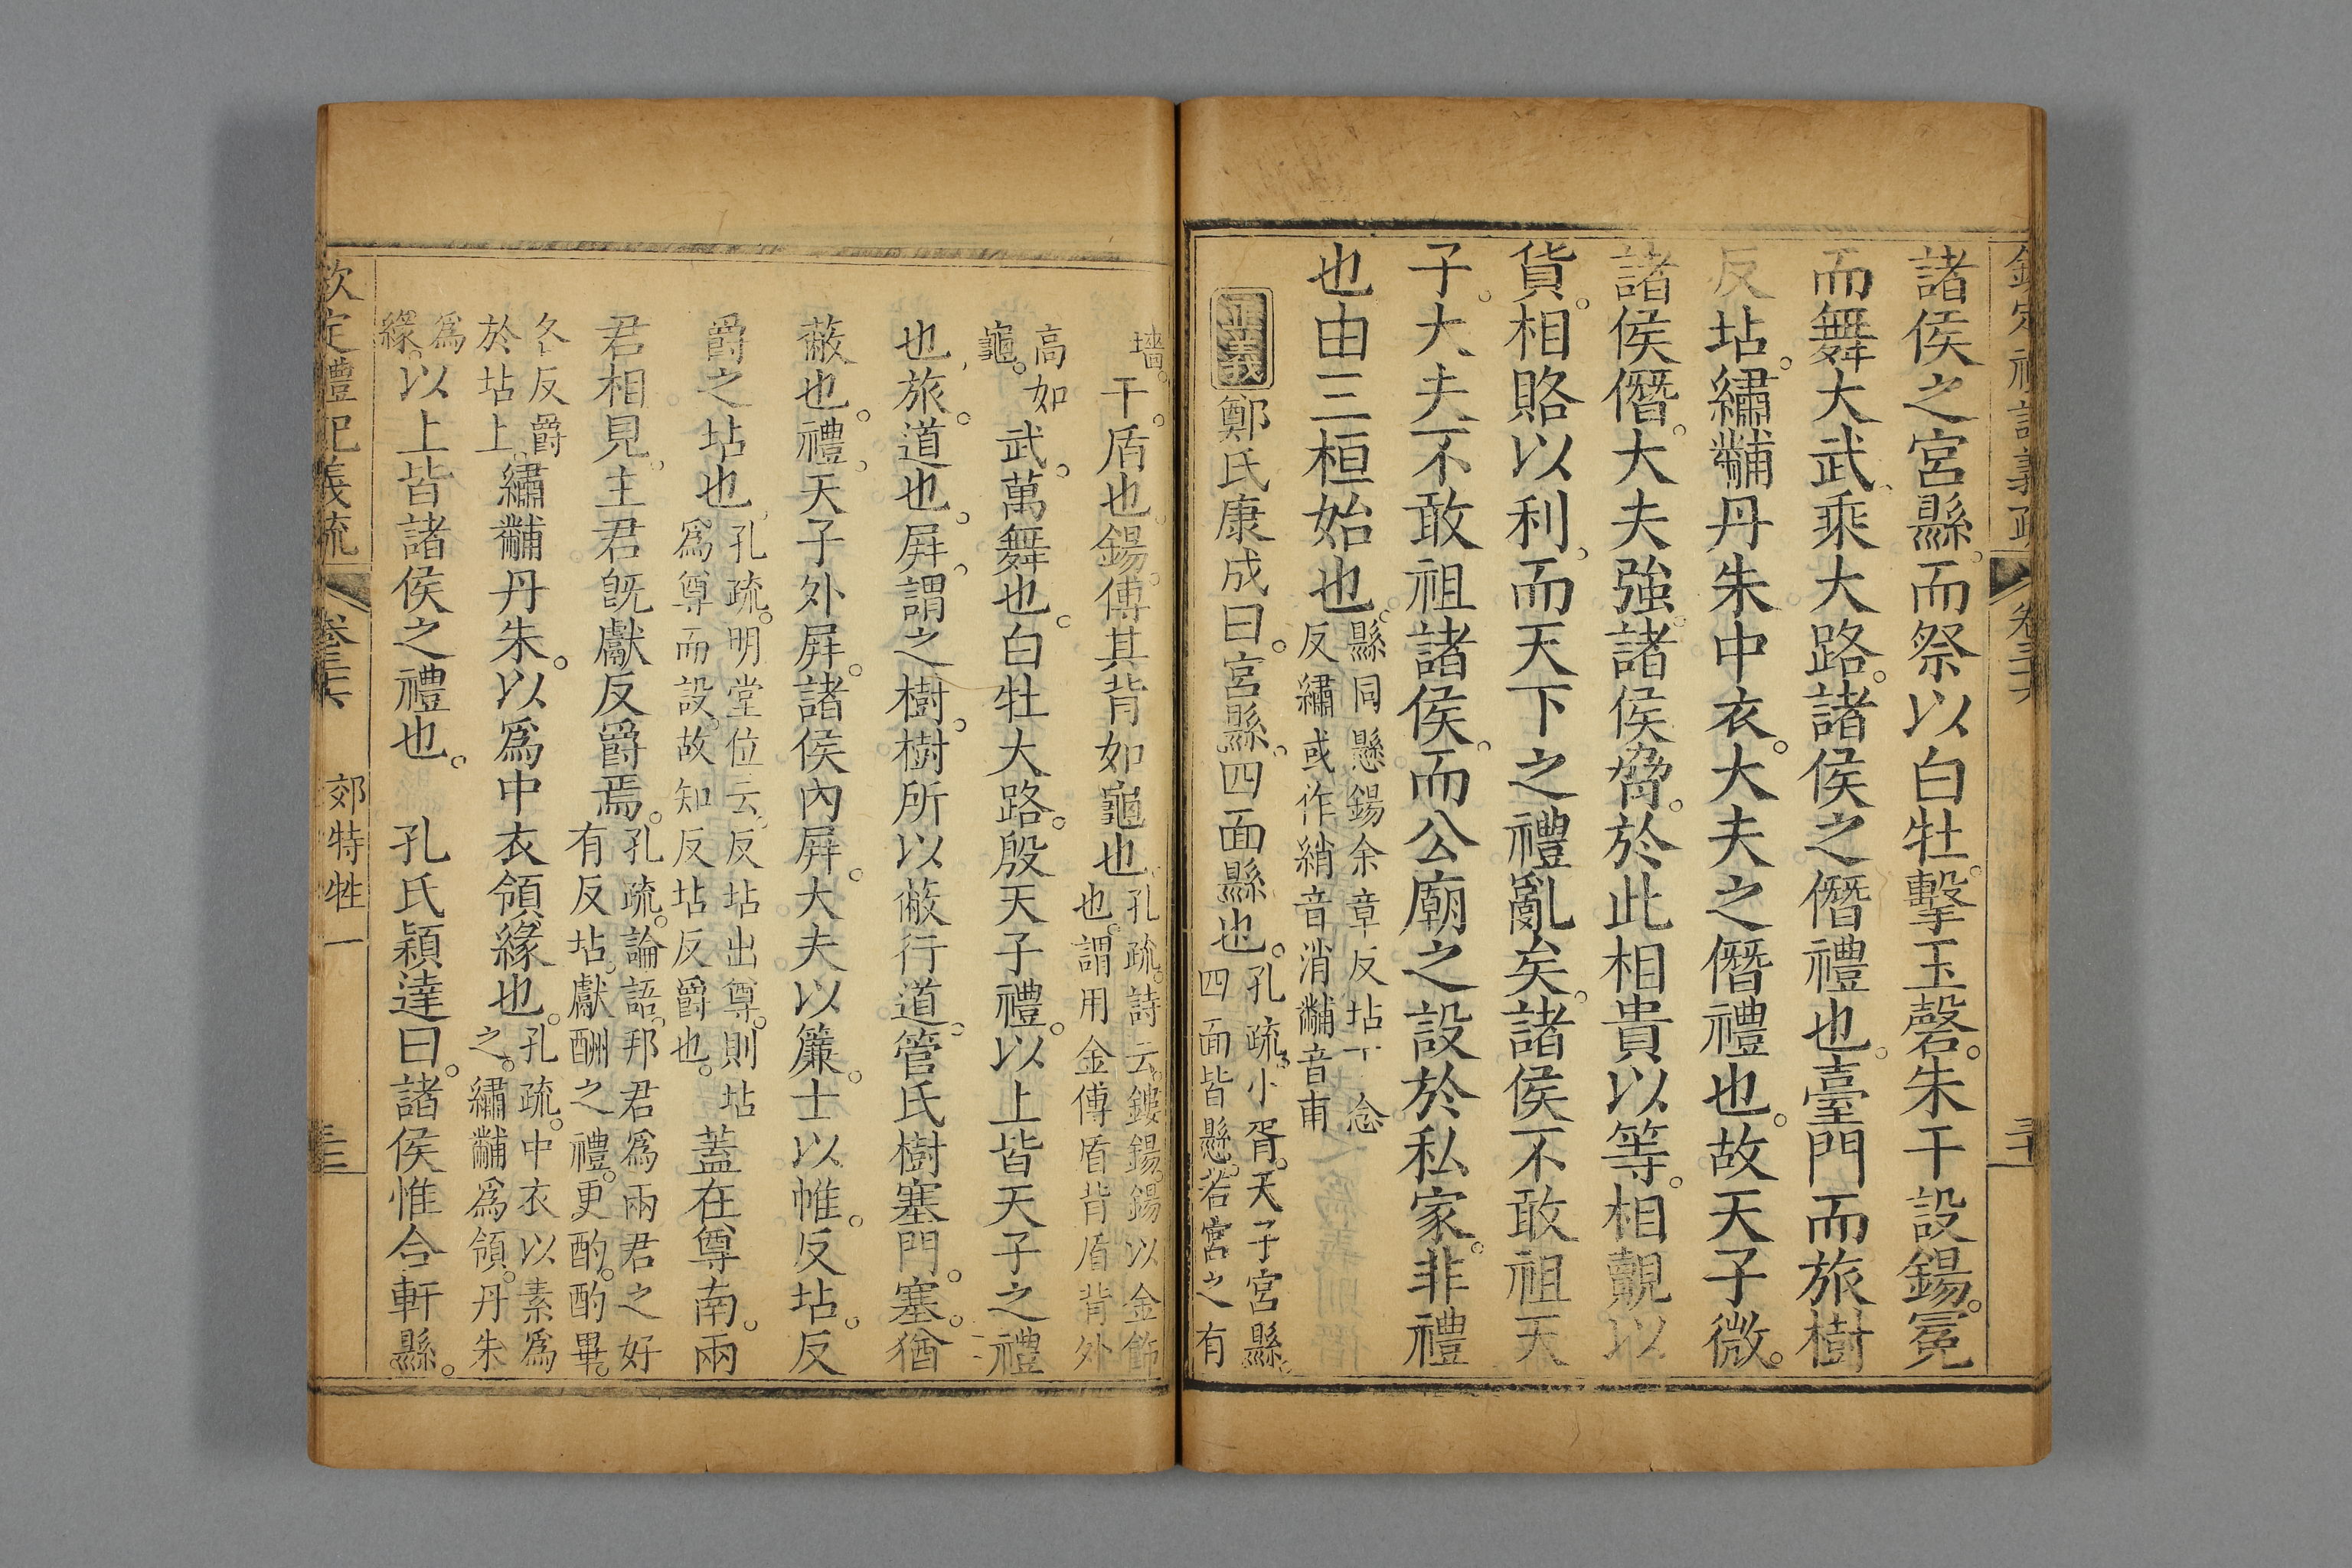 欽定禮記義疏 卷三十六 三十
諸侯之宮縣。而祭以白牡。擊玉磬。朱干設鍚。冕
而舞大武、乘大路。諸侯之僭禮也。臺門而旅樹
反坫。繡黼丹朱中衣。大夫之僭禮也。故天子微。
諸侯僭。大夫強。諸侯脅。於此相貴以等。相覿以
貨。相賂以利、而天下之禮亂矣。諸侯不敢祖天
子。大夫不敢祖諸侯。而公廟之設於私家。非禮
也由三桓始也。縣同懸鍚余章反坫丁念
反繡或作綃音消黼音甫
正義 鄭氏康成曰。宮縣。四面縣也。孔疏。小胥。天子宮縣。
四面皆懸。若宮之有
墻。干。盾也。鍚。傅其背如龜也。孔疏。詩云。鏤鍚。鍚以金飾
也。謂用金傅盾背盾背外
高如
龜。武。萬舞也。白牡大路。殷天子禮。以上皆天子之禮
也、旅。道也。屏。謂之樹。樹所以蔽行道。管氏樹塞門。塞。猶
蔽也。禮。天子外屏。諸侯內屏。大夫以簾。士以帷。反坫。反
爵之坫也、孔疏。明堂位云。反坫出尊。則坫
爲尊而設。故知反坫反爵也。蓋在尊南。兩
君相見。主君旣獻反爵焉。孔疏。論語。邦君爲兩君之好
有反坫。獻酬之禮。更酌。酌畢。
各反爵
於坫上。繡黼丹朱。以爲中衣領緣也。孔疏。中衣以素爲
之。繡黼爲領。丹朱
爲
緣。以上皆諸侯之禮也。 孔氏穎達曰。諸侯惟合軒縣。
欽定禮記義疏 卷三十六 郊特牲一 三十二